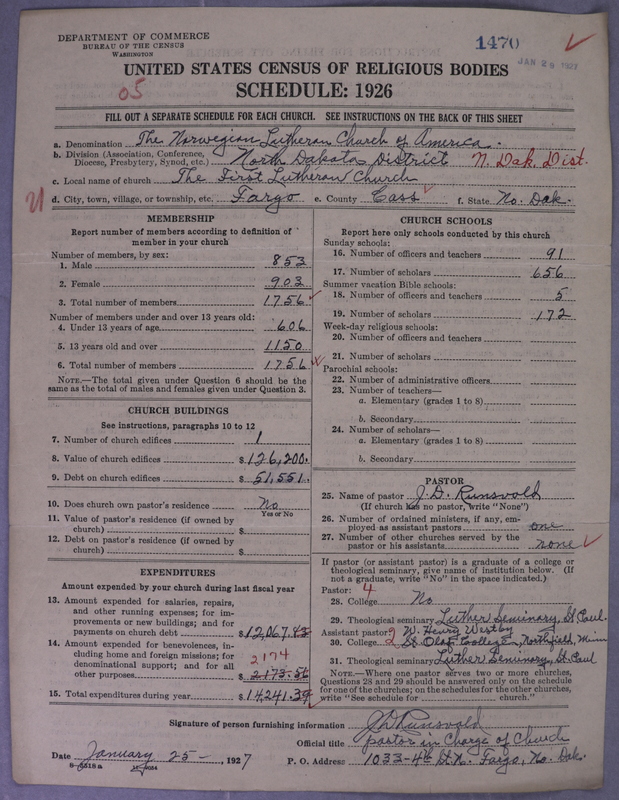 DEPARTMENT OF COMMERCE
BUREAU OF THE CENSUS
WASHINGTON
1470
JAN 29 1927
UNITED STATES CENSUS OF RELIGIOUS BODIES
SCHEDULE: 1926
05
FILL OUT A SEPARATE SCHEDULE FOR EACH CHURCH. SEE INSTRUCTIONS ON THE BACK OF THIS SHEET
a. Denomination The Norwegian Lutheran Church of America.
b. Division (Association, Conference, Diocese, Presbytery, Synod, etc.) North Dakota District N. Dak. Dist.
c. Local name of church The First Lutheran Church
21
d. City, town, village, or township, etc. Fargo e. County Cass f. State No. Dak.
MEMBERSHIP
Report number of members according to definition of member in your church
Number of members, by sex:
1. Male 853
2. Female 903
3. Total number of members 1756
Number of members under and over 13 years old:
4. Under 13 years of age 606
5. 13 years old and over 1150
6. Total number of members 1756
NOTE.—The total given under Question 6 should be the same as the total of males and females given under Question 3.
CHURCH BUILDINGS
See instructions, paragraphs 10 to 12
7. Number of church edifices 1
8. Value of church edifices $126,200.
9. Debt on church edifices $51,551.
10. Does church own pastor's residence No
Yes or No
11. Value of pastor's residence (if owned by church) $
12. Debt on pastor's residence (if owned by church) $
EXPENDITURES
Amount expended by your church during last fiscal year
13. Amount expended for salaries, repairs, and other running expenses; for improvements or new buildings; and for payments on church debt $12,067.43
14. Amount expended for benevolences, including home and foreign missions; for denominational support; and for all other purposes 2174
$2173.56
15. Total expenditures during year $14241.39
CHURCH SCHOOLS
Report here only schools conducted by this church
Sunday schools:
16. Number of officers and teachers 91
17. Number of scholars 656
Summer vacation Bible schools:
18. Number of officers and teachers 5
19. Number of scholars 172
Week-day religious schools:
20. Number of officers and teachers
21. Number of scholars
Parochial schools:
22. Number of administrative officers
23. Number of teachers—
a. Elementary (grades 1 to 8)
b. Secondary
24. Number of scholars—
a. Elementary (grades 1 to 8)
b. Secondary
PASTOR
25. Name of pastor J. D. Runsvold
(If church has no pastor, write "None")
26. Number of ordained ministers, if any, employed as assistant pastors one
27. Number of other churches served by the pastor or his assistants none
If pastor (or assistant pastor) is a graduate of a college or theological seminary, give name of institution below. (If not a graduate, write "No" in the space indicated.)
Pastor: 4
28. College No
29. Theological seminary Luther Seminary, St. Paul.
Assistant pastor: 2 W. Henry Westby
30. College 2 St. Olaf College, Northfield, Minn
31. Theological seminary Luther Seminary, St. Paul
NOTE.—Where one pastor serves two or more churches, Questions 28 and 29 should be answered only on the schedule for one of the churches; on the schedules for the other churches, write "See schedule for church."
Signature of person furnishing information J D Runsvold
Official title pastor in charge of Church
Date January 25 -, 1927 P. O. Address 1033-4th St. N. Fargo, No. Dak.